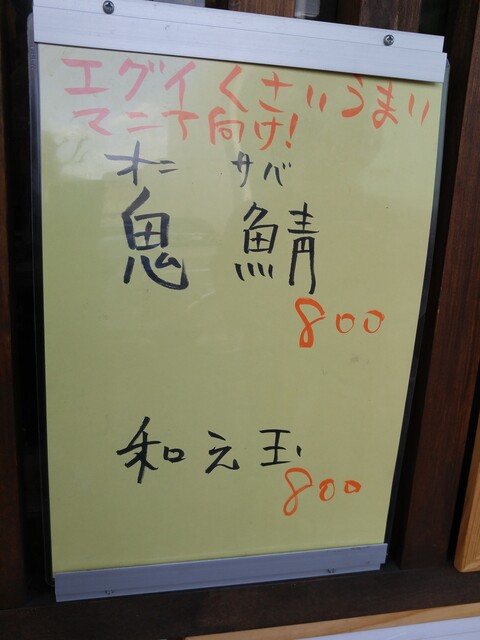 エグイくさいうまい
マニア向け!
オニ サバ
鬼 鯖
800
和え玉
800